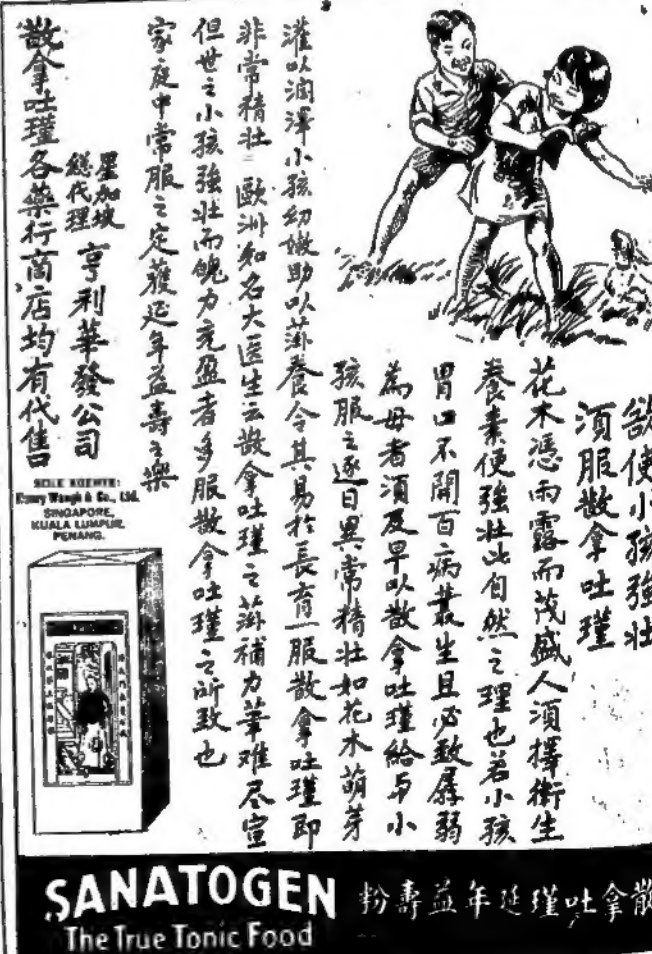 欲使小孩強壯
須服散拿吐瑾
花木憑雨露而茂盛人須擇衛生
養素便強壯此自然之理也若小孩
胃口不開百病叢生且必致孱弱
為母者須及早以散拿吐瑾給与小
孩服之逐日異常精壯如花木萌芽
灌以潤澤小孩幼嫩助以滋養令其易於長育一服散拿吐瑾即
非常精壯 歐洲知名大医生云散拿吐瑾之滋補力筆难尽宣
但世之小孩強壯而魄力充盈者多服散拿吐瑾之所致也
家庭中常服之定獲延年益壽之樂
星加坡
總代理
亨利華發公司
散拿吐瑾各藥行商店均有代售
SOLE AGENTS:
Henry Waugh & Co., Ltd.
SINGAPORE,
KUALA LUMPUR,
PENANG.
散拿吐瑾延年益壽粉
SANATOGEN
The True Tonic Food